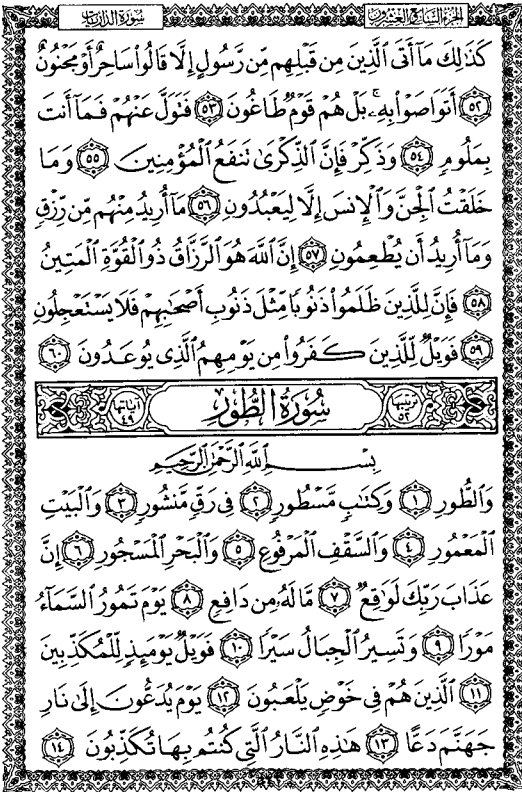 الجزء السابع والعشرون سورة الذاريات
كَذَٰلِكَ مَآ أَتَى ٱلَّذِينَ مِن قَبْلِهِم مِّن رَّسُولٍ إِلَّا قَالُوا۟ سَاحِرٌ أَوْ مَجْنُونٌ
٥٢ أَتَوَاصَوْا۟ بِهِۦ ۚ بَلْ هُمْ قَوْمٌ طَاغُونَ ٥٣ فَتَوَلَّ عَنْهُمْ فَمَآ أَنتَ
بِمَلُومٍ ٥٤ وَذَكِّرْ فَإِنَّ ٱلذِّكْرَىٰ تَنفَعُ ٱلْمُؤْمِنِينَ ٥٥ وَمَا
خَلَقْتُ ٱلْجِنَّ وَٱلْإِنسَ إِلَّا لِيَعْبُدُونِ ٥٦ مَآ أُرِيدُ مِنْهُم مِّن رِّزْقٍ
وَمَآ أُرِيدُ أَن يُطْعِمُونِ ٥٧ إِنَّ ٱللَّهَ هُوَ ٱلرَّزَّاقُ ذُو ٱلْقُوَّةِ ٱلْمَتِينُ
٥٨ فَإِنَّ لِلَّذِينَ ظَلَمُوا۟ ذَنُوبًا مِّثْلَ ذَنُوبِ أَصْحَٰبِهِمْ فَلَا يَسْتَعْجِلُونِ
٥٩ فَوَيْلٌ لِّلَّذِينَ كَفَرُوا۟ مِن يَوْمِهِمُ ٱلَّذِى يُوعَدُونَ ٦٠
ترتيبها ٥٢ سُورَةُ الطُّورِ آياتها ٤٩
بِسْمِ ٱللَّهِ ٱلرَّحْمَٰنِ ٱلرَّحِيمِ
وَٱلطُّورِ ١ وَكِتَٰبٍ مَّسْطُورٍ ٢ فِى رَقٍّ مَّنشُورٍ ٣ وَٱلْبَيْتِ
ٱلْمَعْمُورِ ٤ وَٱلسَّقْفِ ٱلْمَرْفُوعِ ٥ وَٱلْبَحْرِ ٱلْمَسْجُورِ ٦ إِنَّ
عَذَابَ رَبِّكَ لَوَٰقِعٌ ٧ مَّا لَهُۥ مِن دَافِعٍ ٨ يَوْمَ تَمُورُ ٱلسَّمَآءُ
مَوْرًا ٩ وَتَسِيرُ ٱلْجِبَالُ سَيْرًا ١٠ فَوَيْلٌ يَوْمَئِذٍ لِّلْمُكَذِّبِينَ
١١ ٱلَّذِينَ هُمْ فِى خَوْضٍ يَلْعَبُونَ ١٢ يَوْمَ يُدَعُّونَ إِلَىٰ نَارِ
جَهَنَّمَ دَعًّا ١٣ هَٰذِهِ ٱلنَّارُ ٱلَّتِى كُنتُم بِهَا تُكَذِّبُونَ ١٤